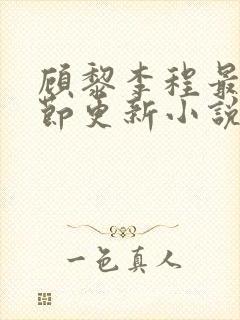 顾黎李程最
节更新小说
一色真人